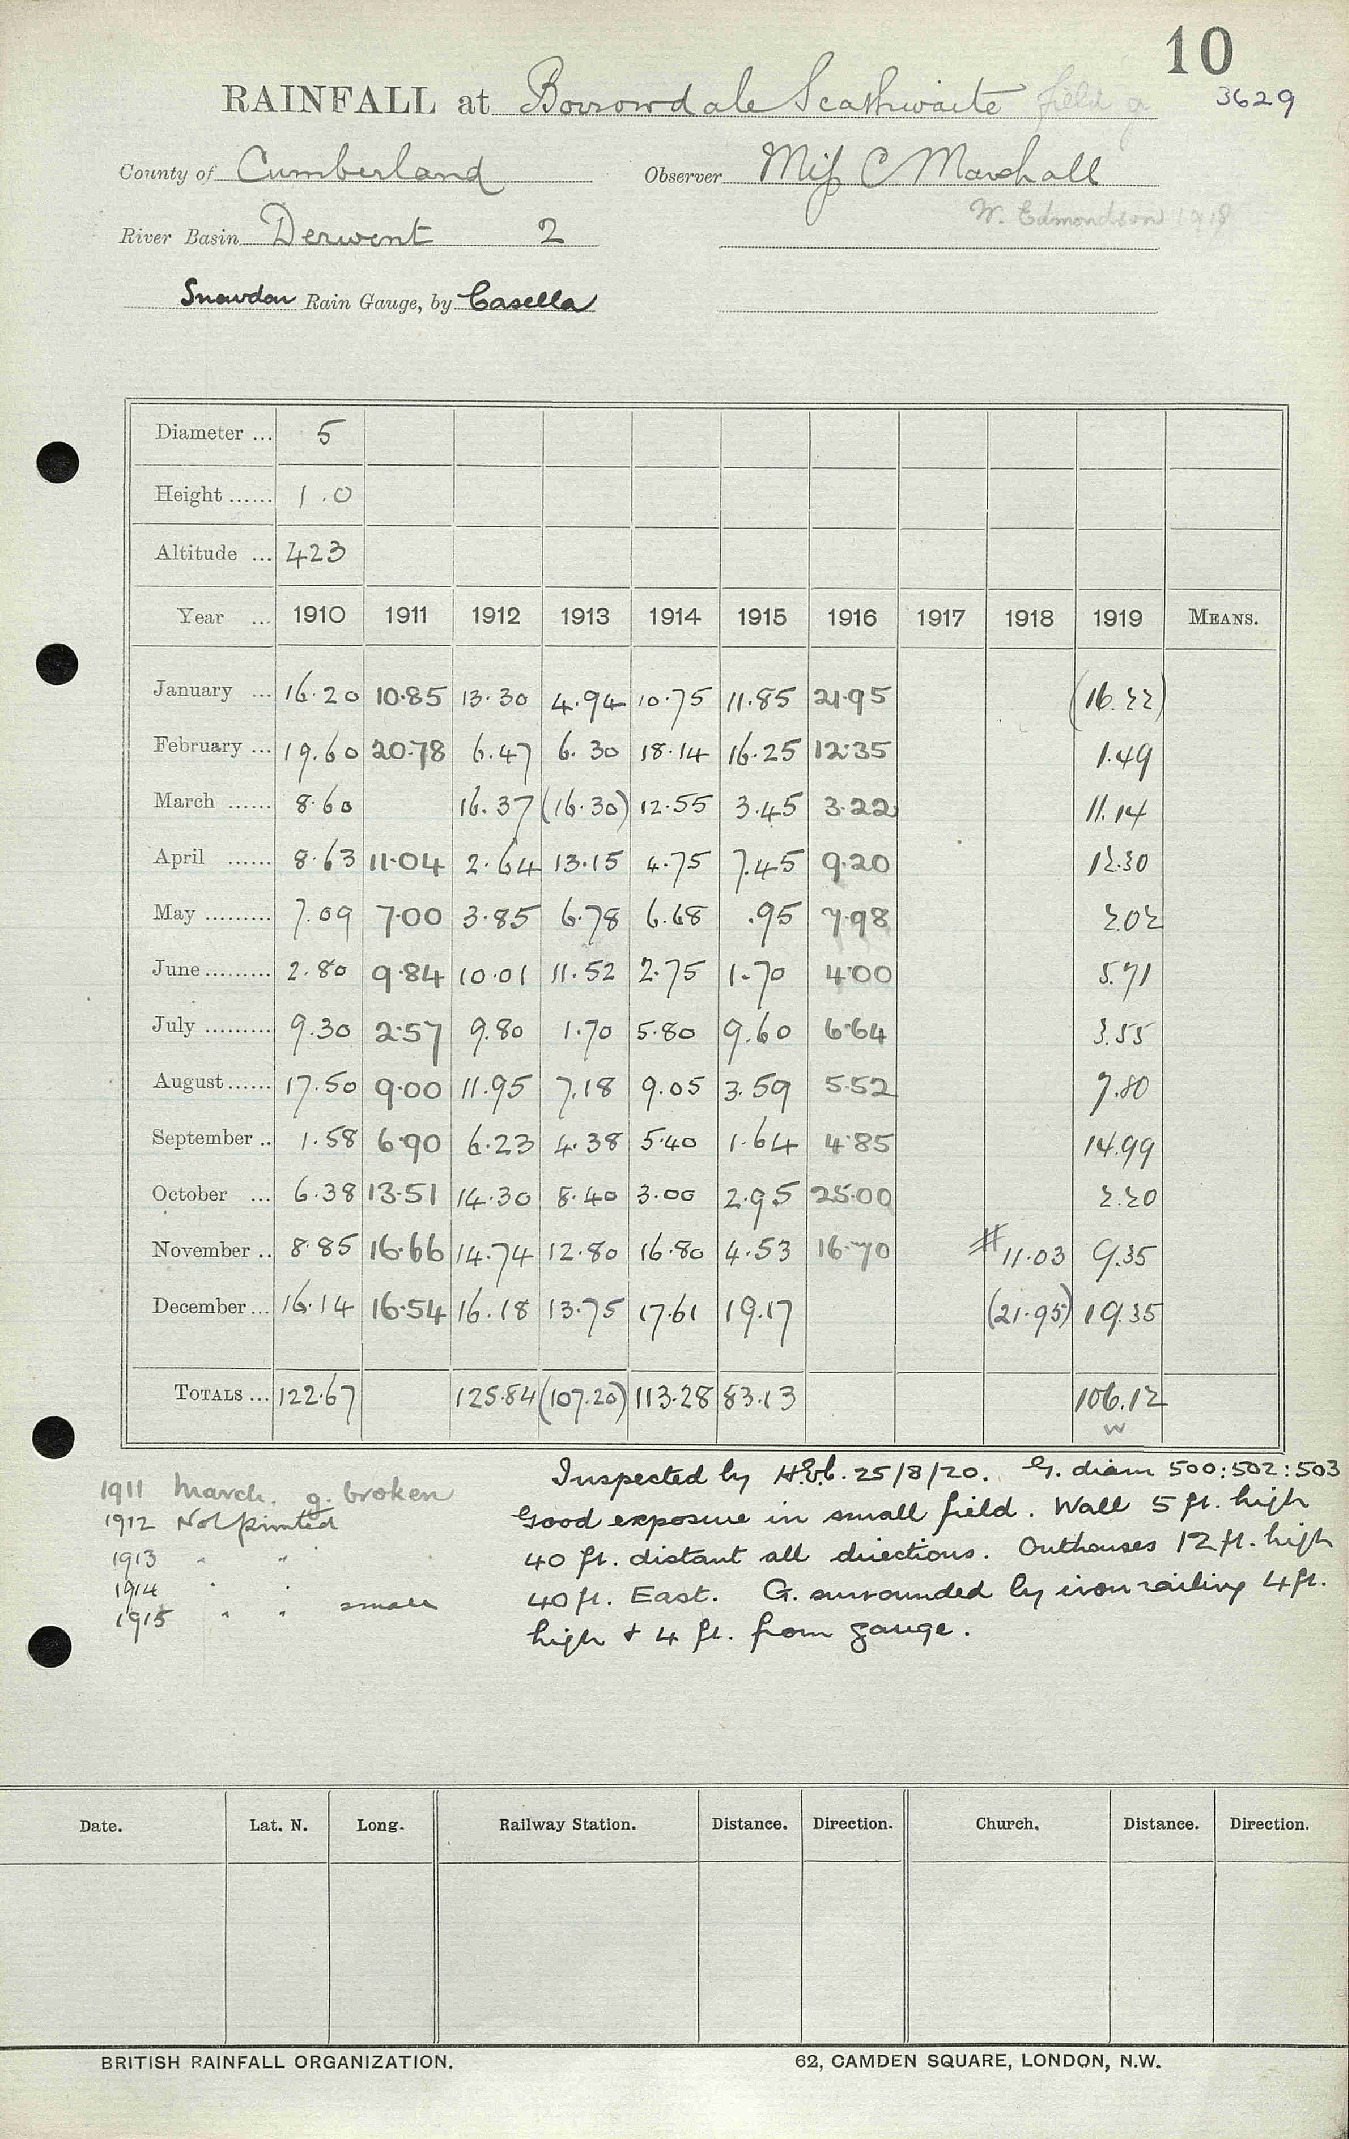 10
RAINFALL at Borrowdale Seathwaite field g 3629
County of Cumberland Observer Miss C Marshall
W. Edmondson 1918
River Basin Derwent 2
Snowdon Rain Gauge, by Casella
Diameter ... 5
Height ...... 1.0
Altitude ... 423
Year ... 1910 1911 1912 1913 1914 1915 1916 1917 1918 1919 MEANS.
January ... 16.20 10.85 13.30 4.94 10.75 11.85 21.95 (16.22)
February ... 19.60 20.78 6.47 6.30 18.14 16.25 12.35 1.49
March ...... 8.60 16.37 (16.30) 12.55 3.45 3.22 11.14
April ...... 8.63 11.04 2.64 13.15 4.75 7.45 9.20 12.30
May ......... 7.09 7.00 3.85 6.78 6.68 .95 7.98 2.02
June ......... 2.80 9.84 10.01 11.52 2.75 1.70 4.00 5.71
July ......... 9.30 2.57 9.80 1.70 5.80 9.60 6.64 3.55
August ...... 17.50 9.00 11.95 7.18 9.05 3.59 5.52 7.80
September .. 1.58 6.90 6.23 4.38 5.40 1.64 4.85 14.99
October ... 6.38 13.51 14.30 8.40 3.00 2.95 25.00 2.20
November .. 8.85 16.66 14.74 12.80 16.80 4.53 16.70 # 11.03 9.35
December ... 16.14 16.54 16.18 13.75 17.61 19.17 (21.95) 19.35
TOTALS ... 122.67 125.84 (107.20) 113.28 83.13 106.12
w
Inspected by 25/8/20. G. diam 500:502:503
Good exposure in small field. Wall 5 ft. high
40 ft. distant all directions. Outhouses 12 ft. high
40 ft. East. G. surrounded by iron railing 4 ft.
high + 4 ft. from gauge.
1911 March. g. broken
1912 Not printed
1913 " "
1914 " "
1915 " " small
Date. Lat. N. Long. Railway Station. Distance. Direction. Church. Distance. Direction.
BRITISH RAINFALL ORGANIZATION. 62, CAMDEN SQUARE, LONDON, N.W.